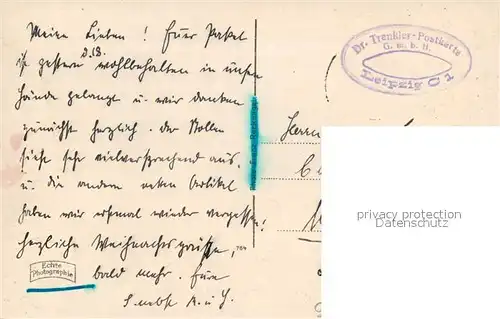 Meine Lieben! Euer Paket
ist gestern wohlbehalten in unsere
d. 18.
Hände gelangt u. wir danken
zunächst herzlich. Der Stollen
sieht sehr vielversprechend aus.
u. die andern Artikel
haben wir erstmal wieder vergessen!
herzliche Weihnachtsgrüsse,
bald mehr. Eure
A. u. H.
Echte
Photographie
Dr. Trenkler-Postkarte
G. m. b. H.
Leipzig C 1
Herrn
privacy protection
Datenschutz